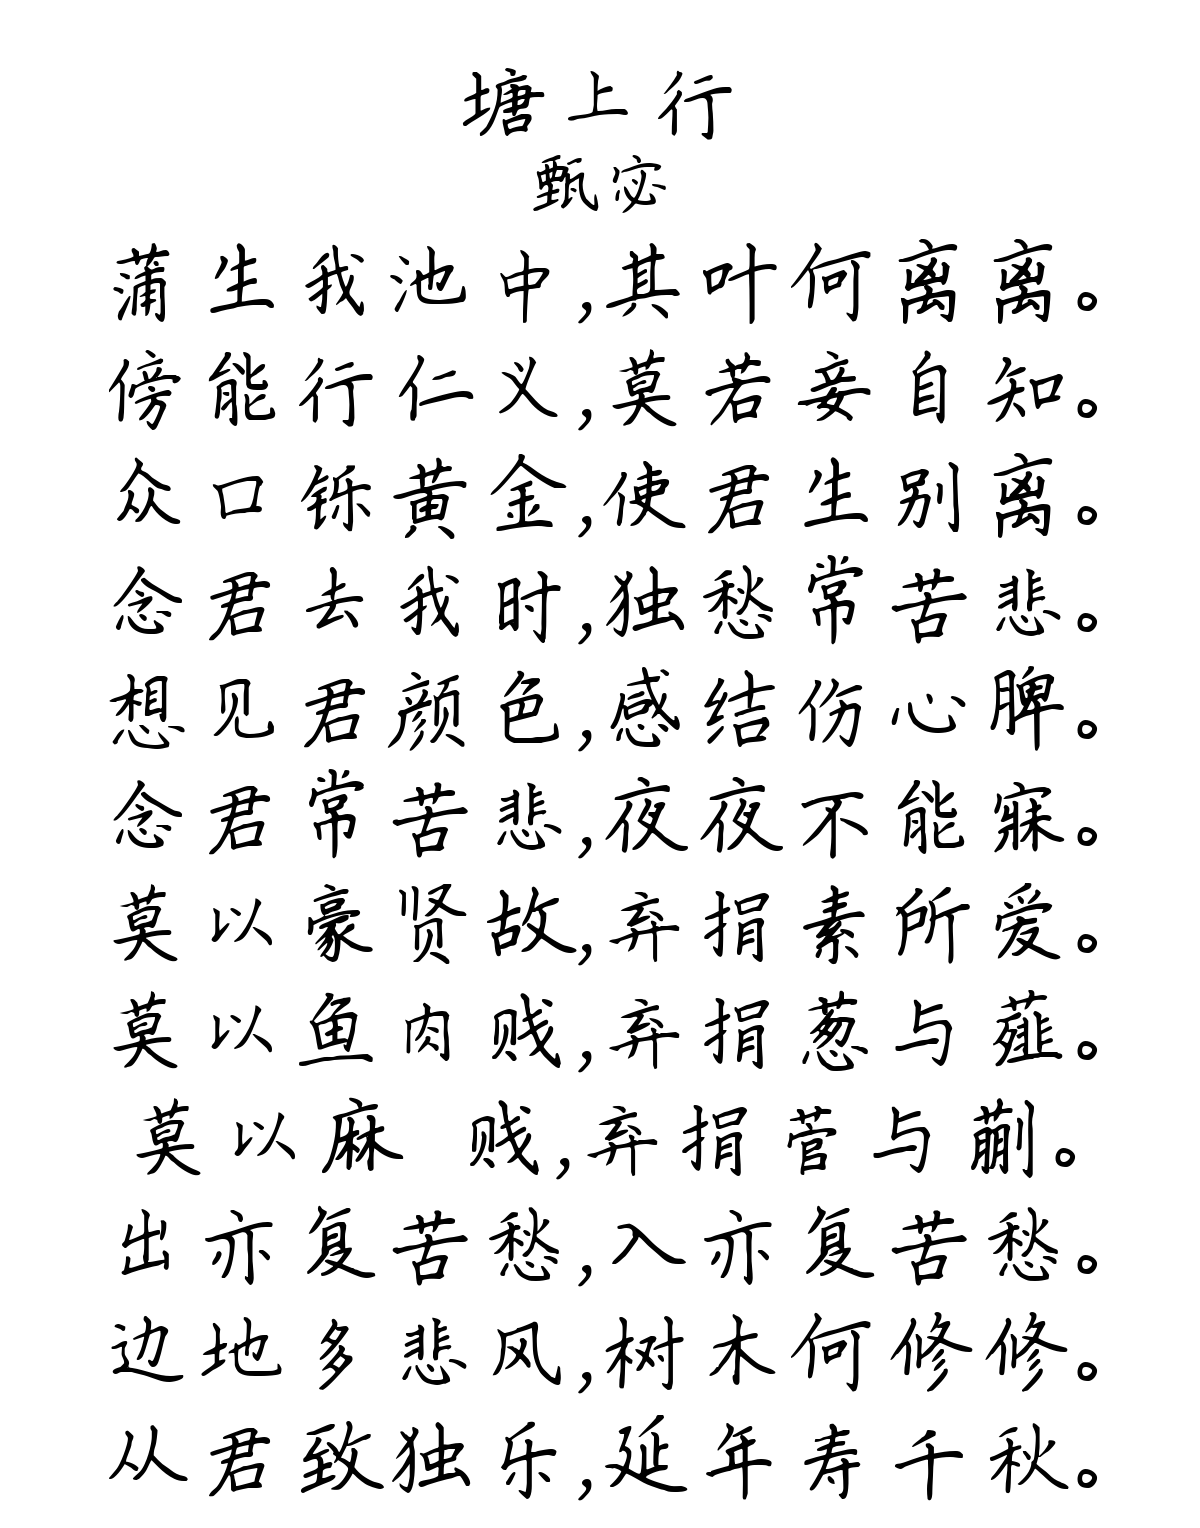 塘上行
甄宓
蒲生我池中,其叶何离离。
傍能行仁义,莫若妾自知。
众口铄黄金,使君生别离。
念君去我时,独愁常苦悲。
想见君颜色,感结伤心脾。
念君常苦悲,夜夜不能寐。
莫以豪贤故,弃捐素所爱。
莫以鱼肉贱,弃捐葱与薤。
莫以麻 贱,弃捐菅与蒯。
出亦复苦愁,入亦复苦愁。
边地多悲风,树木何修修。
从君致独乐,延年寿千秋。